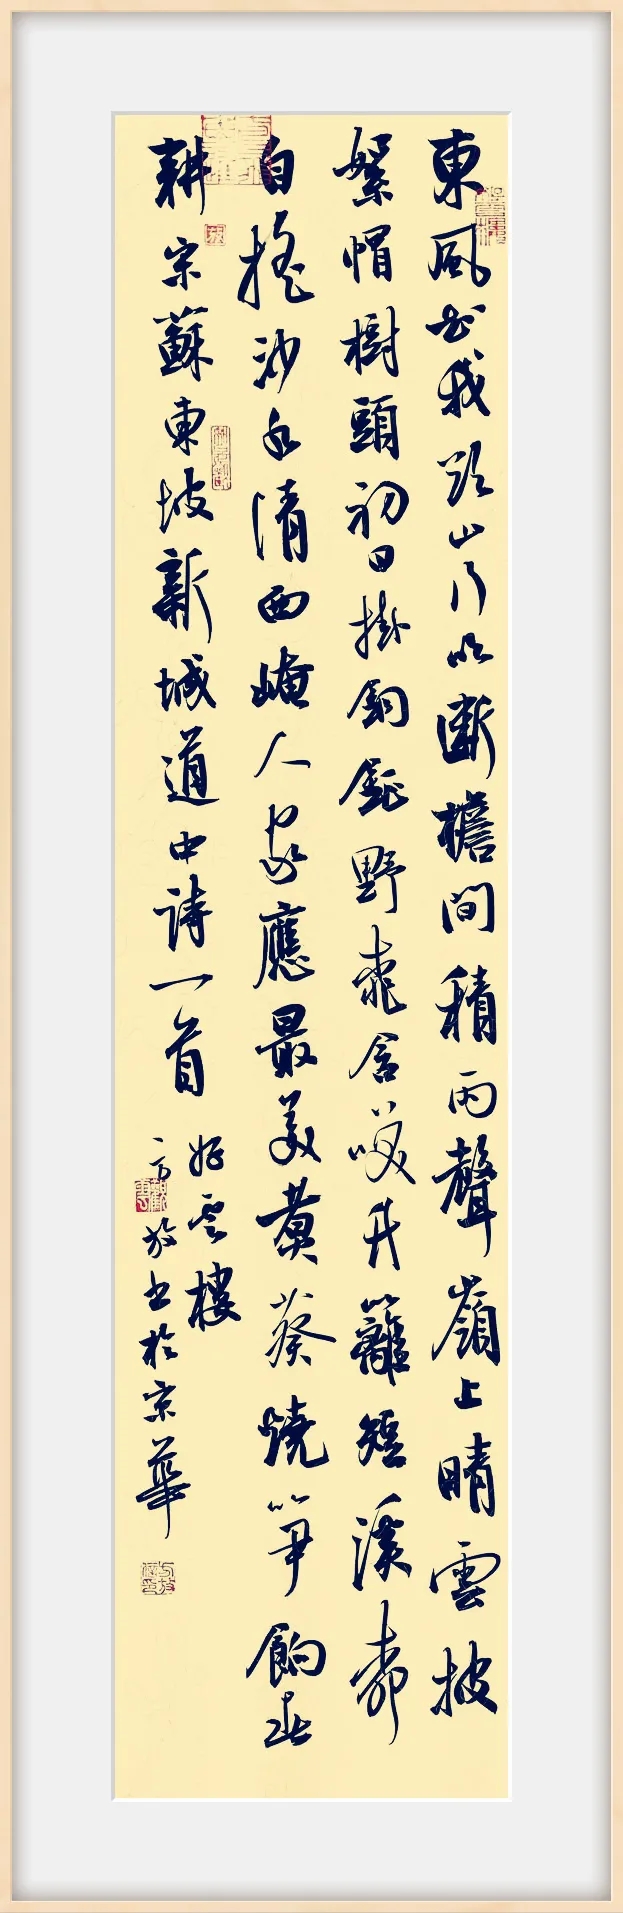 東風知我欲山行吹斷檐間積雨聲嶺上晴雲披
絮帽樹頭初日掛銅鉦野桃含咲竹籬短溪柳
自搖沙水清西崦人家應最美煮葵燒筍餉春
耕宋蘇東坡新城道中詩一首
雲樓
方放书於京華